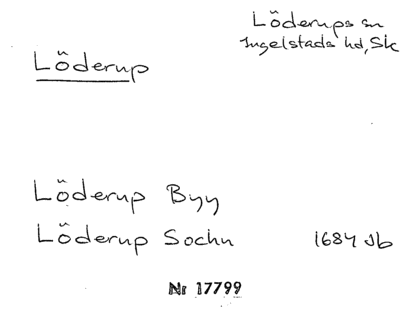 Löderups sn
Ingelstads hd, Sk
Löderup
Löderup Byy
Löderup Sochn 1684 Jb
Nr 17799